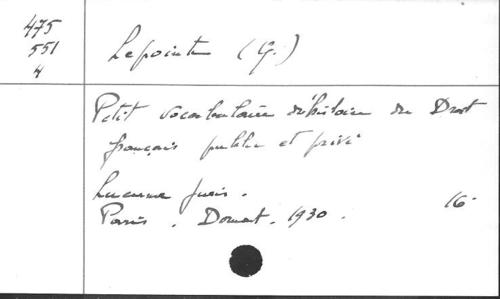 475
551
4
Lepointe (G.)
Petit vocabulaire d'histoire du Droit
français public et privé
Lucerna juris.
Paris. Domat. 1930. 16.